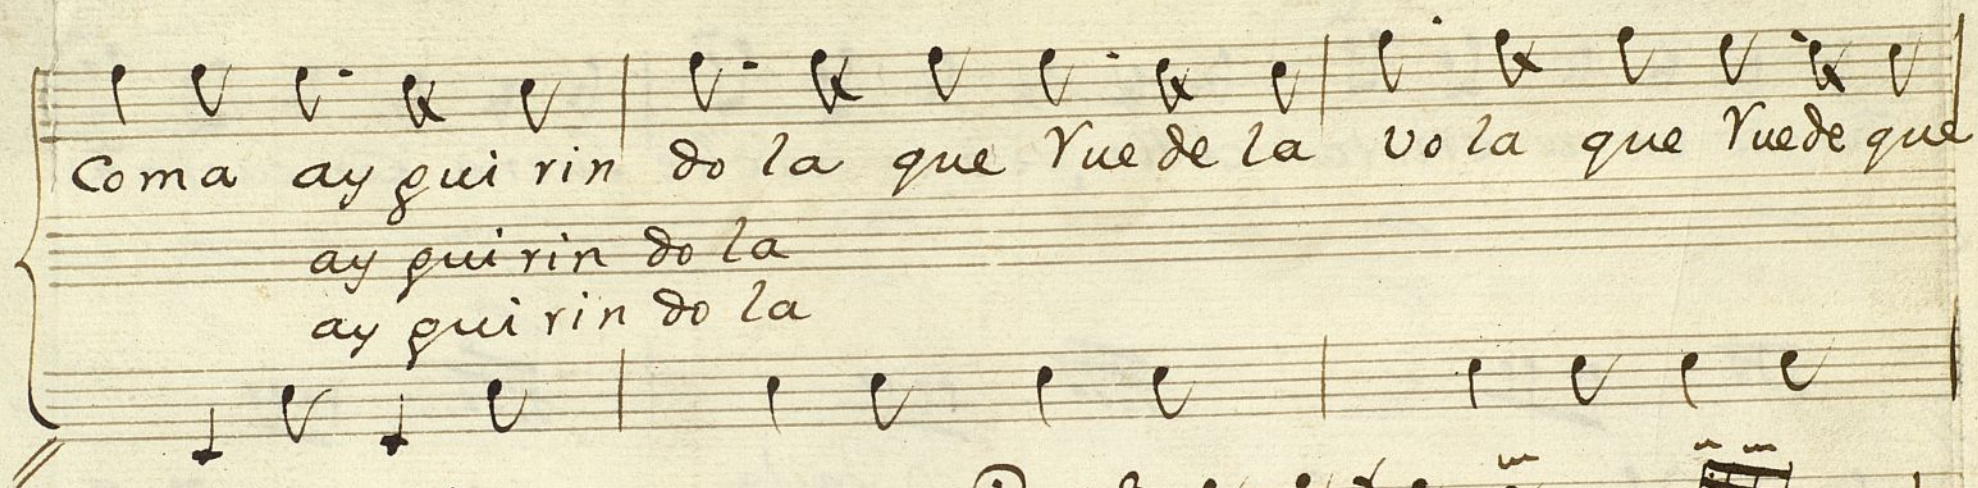 Coma ay gui rin do la que Rue de la vo la que Rue de que
ay gui rin do la
ay gui rin do la